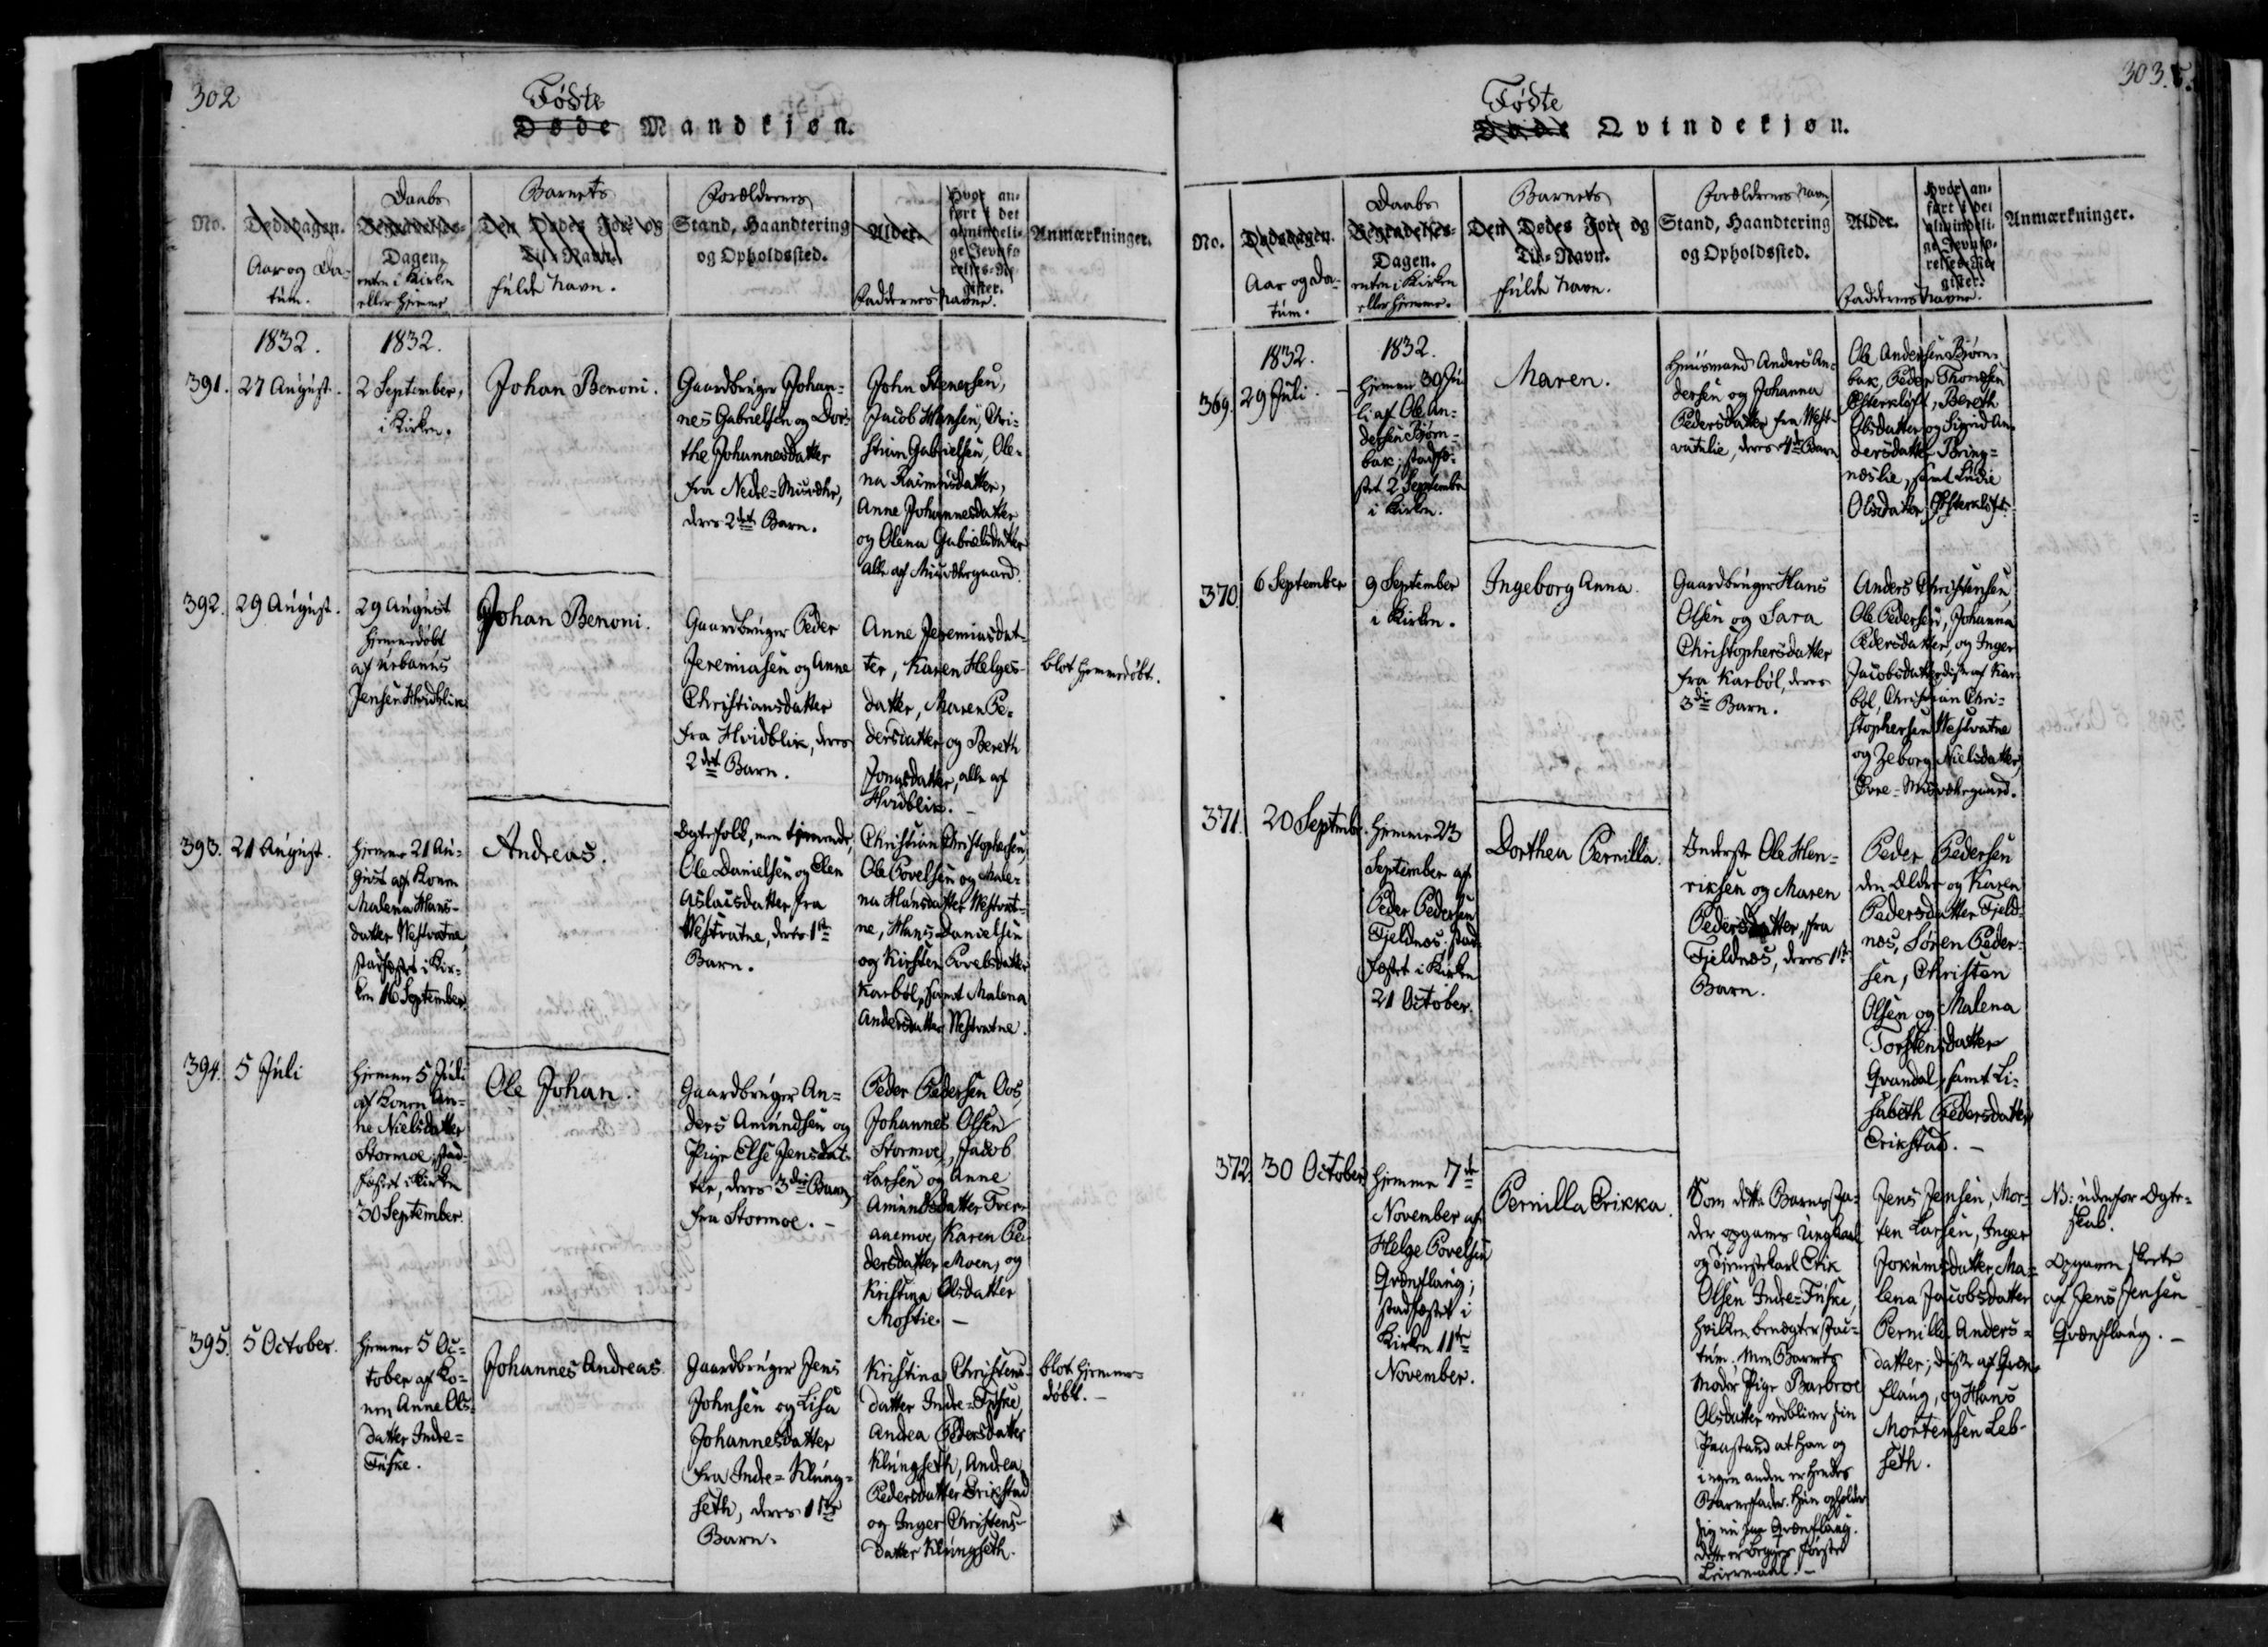 302
Födte
Døde Mandkjøn.
No.
Dødsdagen.
Aar og Da-
tum.
Daabs
Begravelses-
Dagen,
enten i Kirken
eller hjemme
Barnets
Den Dødes For- og
Til-Navn.
fulde Navn.
Forældrenes
Stand, Haandtering
og Opholdssted.
Alder.
Hvor an-
ført i det
almindeli-
ge Jevnfø-
relses-Re-
gister.
Faddernes Navne.
Anmærkninger.
1832.
1832.
391.
27 August.
2 September,
i Kirken.
Johan Benoni.
Gaardbruger Johan-
nes Gabrielsen og Dor-
the Johannesdatter
fra Nedre-
deres 2det Barn.
John Stenersen,
Jacob Hansen, Chri-
stian Gabrielsen, Ole-
na Rasmusdatter,
Anne Johannesdatter
og Olena Gabrielsdatter
alle af
392.
29 August.
29 August
hjemmedöbt
af Urbanus
Jensen Hvidblik
Johan Benoni.
Gaardbruger Peder
Jeremiasen og Anne
Christiansdatter
fra Hvidblik, deres
2det Barn.
Anne Jeremiasdat-
ter, Karen Helges-
datter, Maren Pe-
dersdatter og Bereth
Jonasdatter, alle af
Hvidblik. -
blot hjemmedöbt.
393.
21 August.
hjemme 21 Au-
gust af Konen
Malena Hans-
datter Westvatne,
stadfæstet i Kir-
ken 16 September.
Andreas.
Ægtefolk, men tjenende,
Ole Danielsen og Elen
Aslaksdatter fra
Westvatne, deres 1ste
Barn.
Christian Christophersen,
Ole Povelsen og Male-
na Hansdatter Westvat-
ne, Hans Danielsen
og Kirsten Povelsdatter
Karböl, samt Malena
Andersdatter Westvatne.
394.
5 Juli
hjemme 5 Juli
af Konen An-
ne Nielsdatter
Stormoe, stad-
fæstet i Kirken
30 September.
Ole Johan.
Gaardbruger An-
ders Amundsen og
Pige Else Jensdat-
ter, deres 3die Barn,
fra Stormoe. -
Peder Pedersen Oos,
Johannes Olsen
Stormoe, Jacob
Larsen og Anne
Amundsdatter Tver-
aaemoe, Karen Pe-
dersdatter Moen, og
Kristina Olsdatter
395.
5 October.
hjemme 5 Oc-
tober af Ko-
nen Anne Ols-
datter Indre-
Fuske.
Johannes Andreas.
Gaardbruger Jens
Johnsen og Lisa
Johannesdatter
fra Indre-Klung-
seth, deres 1ste
Barn.
Kristina Christens-
datter Indre-Fuske,
Andrea Pedersdatter
Klungseth, Andrea
Pedersdatter Erikstad
og Inger Christens-
datter Klungseth.
blot hjemme-
döbt. -
303.
Födte
Døde Qvindekjøn.
No.
Dødsdagen.
Aar og Da-
tum.
Daabs
Begravelses-
Dagen.
enten i Kirken
eller hjemme.
Barnets
Den Dødes For- og
Til-Navn.
fulde Navn.
Forældrenes Navn,
Stand, Haandtering
og Opholdssted.
Alder.
Hvor an-
ført i det
almindeli-
ge Jevnfø-
relses-Re-
gister.
Faddernes Navne.
Anmærkninger.
1832.
1832.
369.
29 Juli.
hjemme 30 Ju-
li af Ole An-
dersen Björn-
bak; stadfæ-
stet 2 September
i Kirken.
Maren.
Huusmand Anders An-
dersen og Johanna
Pedersdatter fra West-
vatnlie, deres 4de Barn
Ole Andersen Björn-
bak, Peder Thomsen
Österklöft, Bereth
Olsdatter og Sigrid An-
dersdatter Bring-
neslie, samt
Olsdatter Österklöft.
370.
6 September
9 September
i Kirken.
Ingeborg Anna.
Gaardbruger Hans
Olsen og Sara
Christophersdatter
fra Karböl, deres
3die Barn.
Anders Christensen,
Ole Pedersen, Johanna
Pedersdatter, og Inger
Jacobsdatter disse af Kar-
böl, Christian Chri-
stophersen Westvatne
og Zeborg Nielsdatter,
371.
20 Septemb.
hjemme 23
September af
Peder Pedersen
Fjeldnes; stad-
fæstet i Kirken
21 October.
Dorthea Pernilla.
Inderste Ole Hen-
riksen og Maren
Pedersdatter, fra
Fjeldnes, deres 1ste
Barn.
Peder Pedersen
den Ældre og Karen
Pedersdatter Fjeld-
nes, Sören Peder-
sen, Christen
Olsen og Malena
Torstensdatter
Qvandal, samt Li-
sabeth Pedersdatter
Erikstad. -
372.
30 October
hjemme 7de
November af
Helge Povelsen
Grönflaug;
stadfæstet i
Kirken 11te
November.
Pernilla Erikka.
Som dette Barns Fa-
der opgaves Ungkarl
og Tjenestekarl Erik
Olsen Indre-Fuske,
hvilken benægter Fac-
tum; men Barnets
Moder Pige Barbroe
Olsdatter vedbliver sin
Paastand at han og
ingen anden er hendes
Barnefader. Hun opholder
sig nu paa Grönflaug.
dette er begges første
Leiermaal. -
Jens Jensen, Mor-
ten Larsen, Inger
Jokumsdatter, Ma-
lena Jacobsdatter
Pernilla Anders-
datter; disse af Grön-
flaug, og Hans
Mortensen Leb-
seth.
NB: udenfor Ægte-
skab.
Opgaven skeete
af Jens Jensen
Grönflaug. -